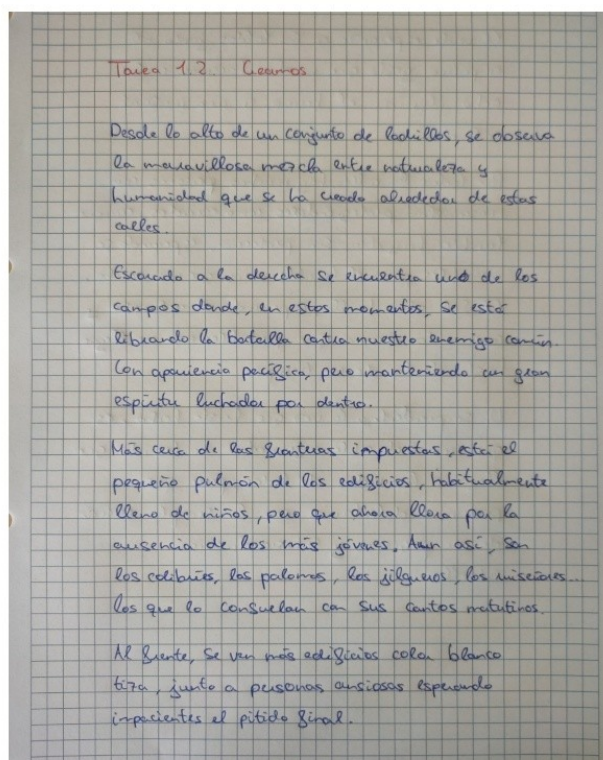 Tarea 1.2. Creamos
Desde lo alto de un conjunto de ladrillos, se observa
la maravillosa mezcla entre naturaleza y
humanidad que se ha creado alrededor de estas
calles.
Escorado a la derecha se encuentra uno de los
campos donde, en estos momentos, se está
librando la batalla contra nuestro enemigo común.
Con apariencia pacífica, pero manteniendo un gran
espíritu luchador por dentro.
Más cerca de las fronteras impuestas, está el
pequeño pulmón de los edificios, habitualmente
lleno de niños, pero que ahora llora por la
ausencia de los más jóvenes. Aun así, son
los colibríes, las palomas, los jilgueros, los ruiseñores...
los que lo consuelan con sus cantos matutinos.
Al frente, se ven más edificios color blanco
tiza, junto a personas ansiosas esperando
impacientes el pitido final.